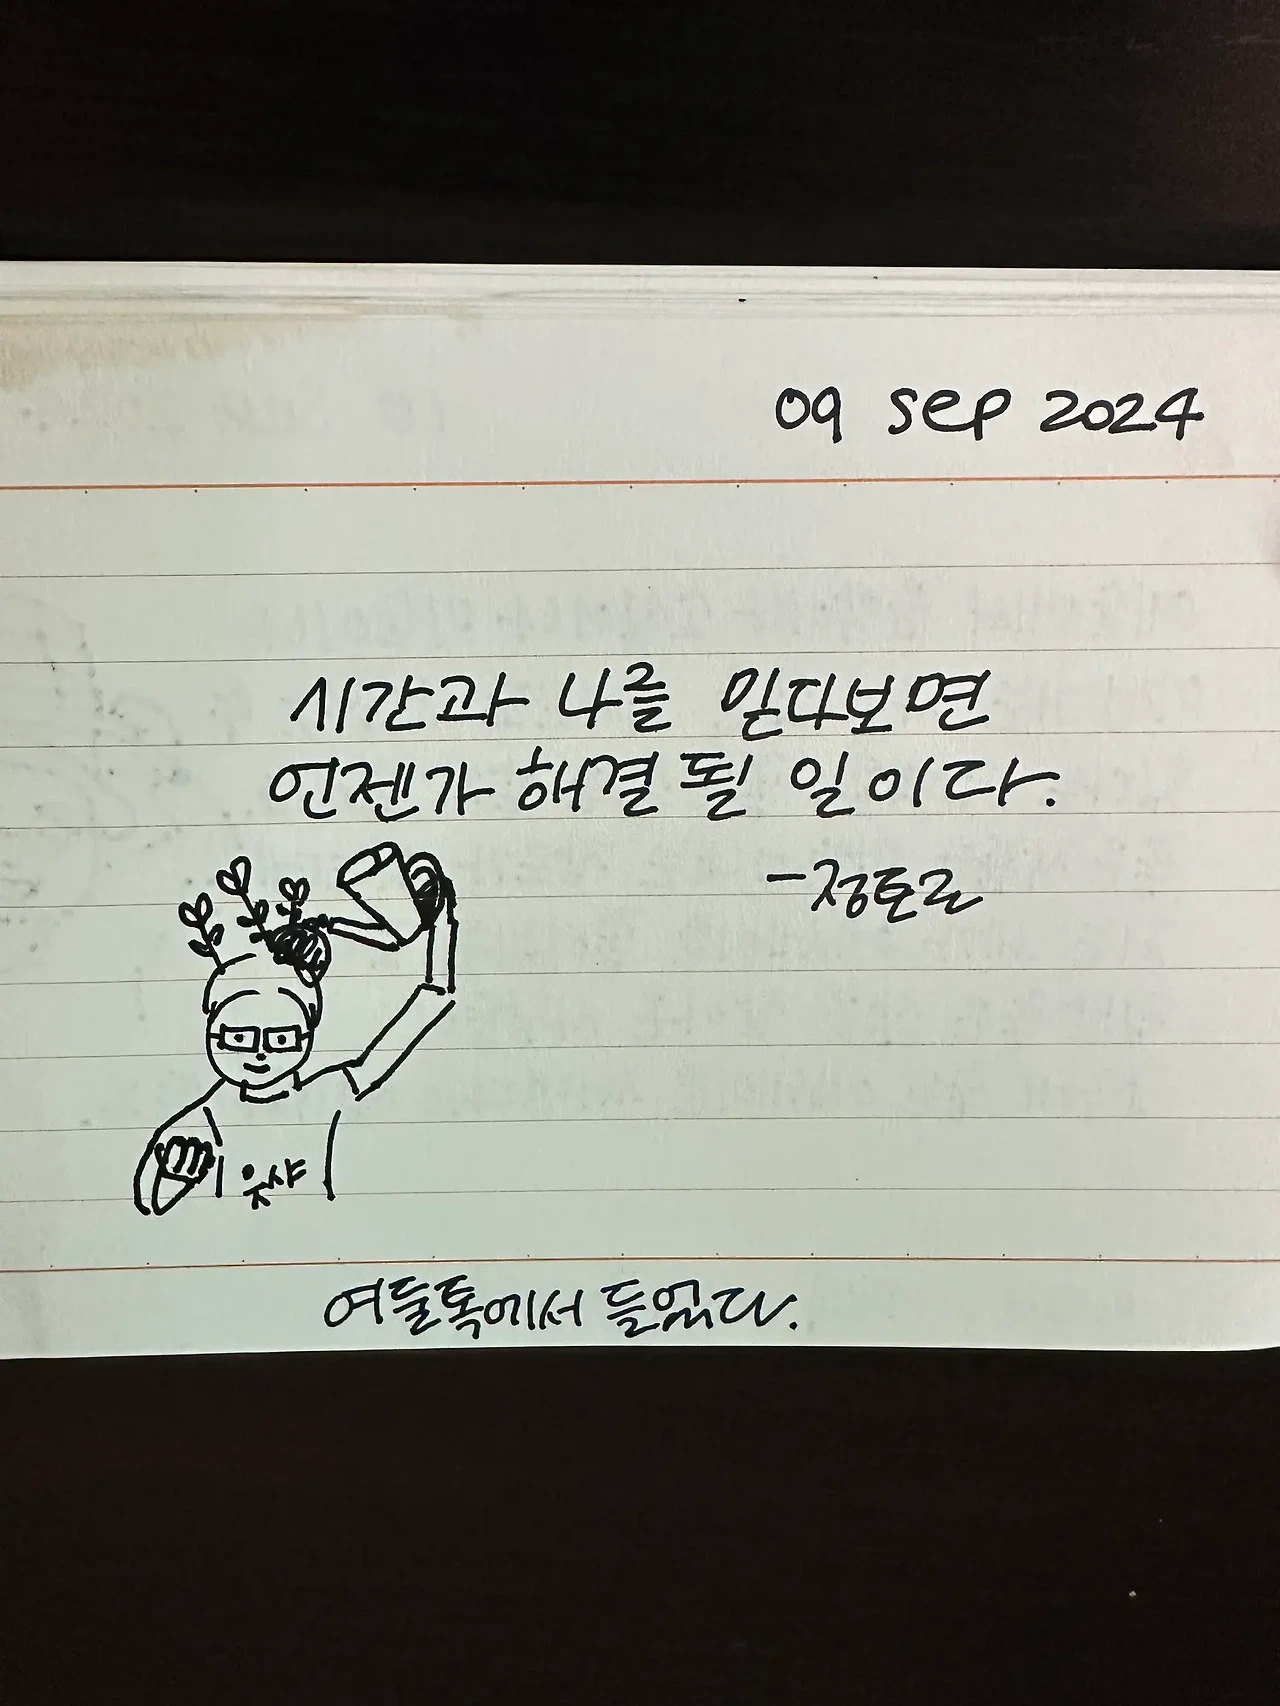 09 Sep 2024
시간과 나를 믿다보면
언젠가 해결 될 일이다.
-정토르
웃샤
여둘톡에서 듣읽다.